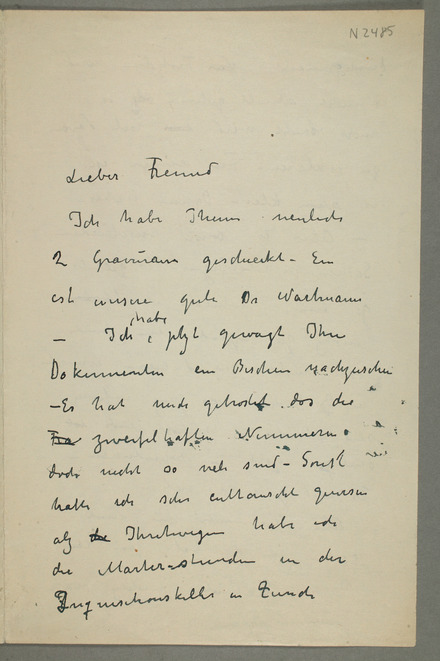 N 2485
Lieber Freund
Ich habe Ihnen neulich
2 Gravuren geschickt - Ein
ist unsere gute Dr
- Ich habe jetzt gewagt Ihre
Dokumenten ein Bischen nachzusehen
- Es hat mich getröstet dos die
zweifelhaften Nummern
doch nicht so viele sind - Sonst
hatte ich sehr enttäuscht gewesen
als Ihretwegen habe ich
die Marter-stunden in der
Inquisitionskeller in Zürich